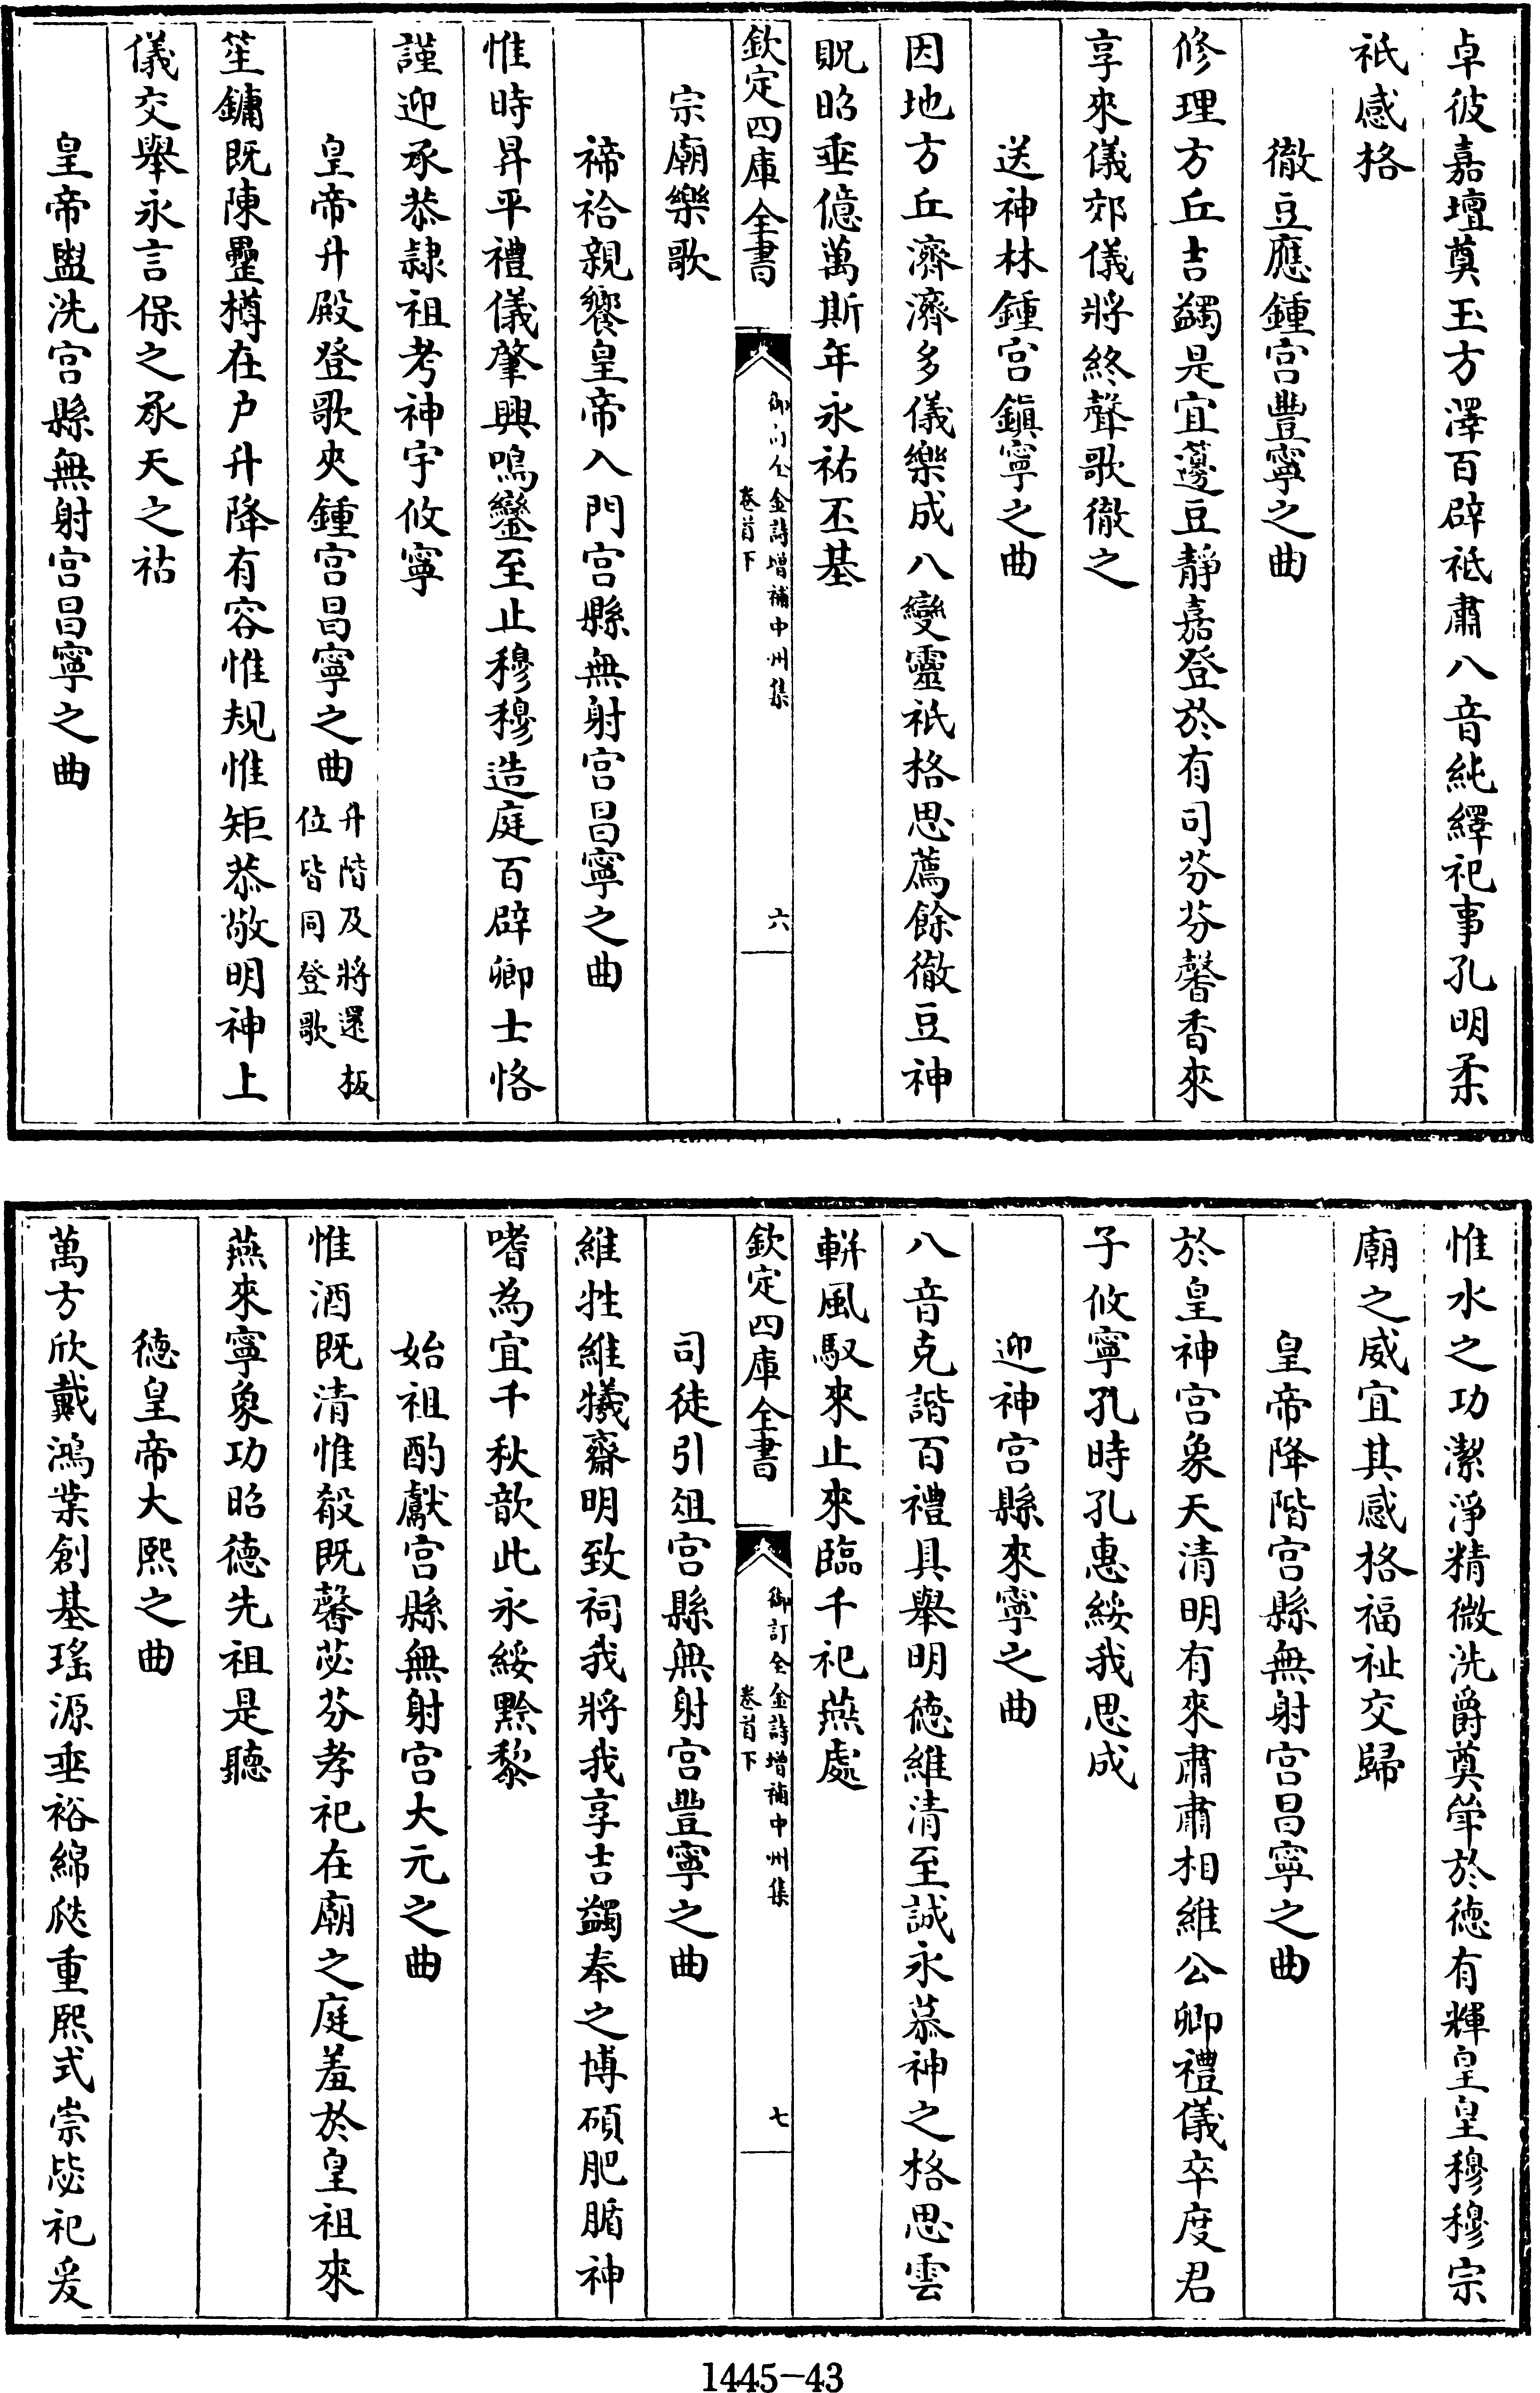 卓彼嘉壇奠玉方澤百辟祗肅八音純繹祀事孔明柔
祇感格
徹豆應鍾宫豐寧之曲
修理方丘吉蠲是宜籩豆靜嘉登於有司芬芬馨香來
享來儀郊儀將終聲歌徹之
送神林鍾宫鎮寧之曲
因地方丘濟濟多儀樂成八變靈祇格思薦餘徹豆神
貺昭垂億萬斯年永祐丕基
欽定四庫全書
御訂全金詩增補中州集
卷首下
六
宗廟樂歌
禘祫親饗皇帝入門宫縣無射宫昌寧之曲
惟時昇平禮儀肇興鳴鑾至止穆穆造庭百辟卿士恪
謹迎承恭隸祖考神宇攸寧
皇帝升殿登歌夾鍾宫昌寧之曲升階及將還板
位皆同登歌
笙鏞既陳罍樽在户升降有容惟規惟矩恭敬明神上
儀交舉永言保之承天之祜
皇帝盥洗宫縣無射宫昌寧之曲
惟水之功潔淨精微洗爵奠斝於德有輝皇皇穆穆宗
廟之威宜其感格福祉交歸
皇帝降階宫縣無射宫昌寧之曲
於皇神宫象天清明有來肅肅相維公卿禮儀卒度君
子攸寧孔時孔惠綏我思成
迎神宫縣來寧之曲
八音克諧百禮具舉明德維清至誠永慕神之格思雲
軿風馭來止來臨千祀燕處
欽定四庫全書
御訂全金詩增補中州集
卷首下
七
司徒引俎宫縣無射宫豐寧之曲
維牲維犧齋明致祠我將我享吉蠲奉之博碩肥腯神
嗜為宜千秋歆此永綏黔黎
始祖酌獻宫縣無射宫大元之曲
惟酒既清惟殽既馨苾芬孝祀在廟之庭羞於皇祖來
燕來寧象功昭德先祖是聽
德皇帝大熙之曲
萬方欣戴鴻業創基瑤源垂裕綿瓞重熙式崇毖祀爰
1445-43